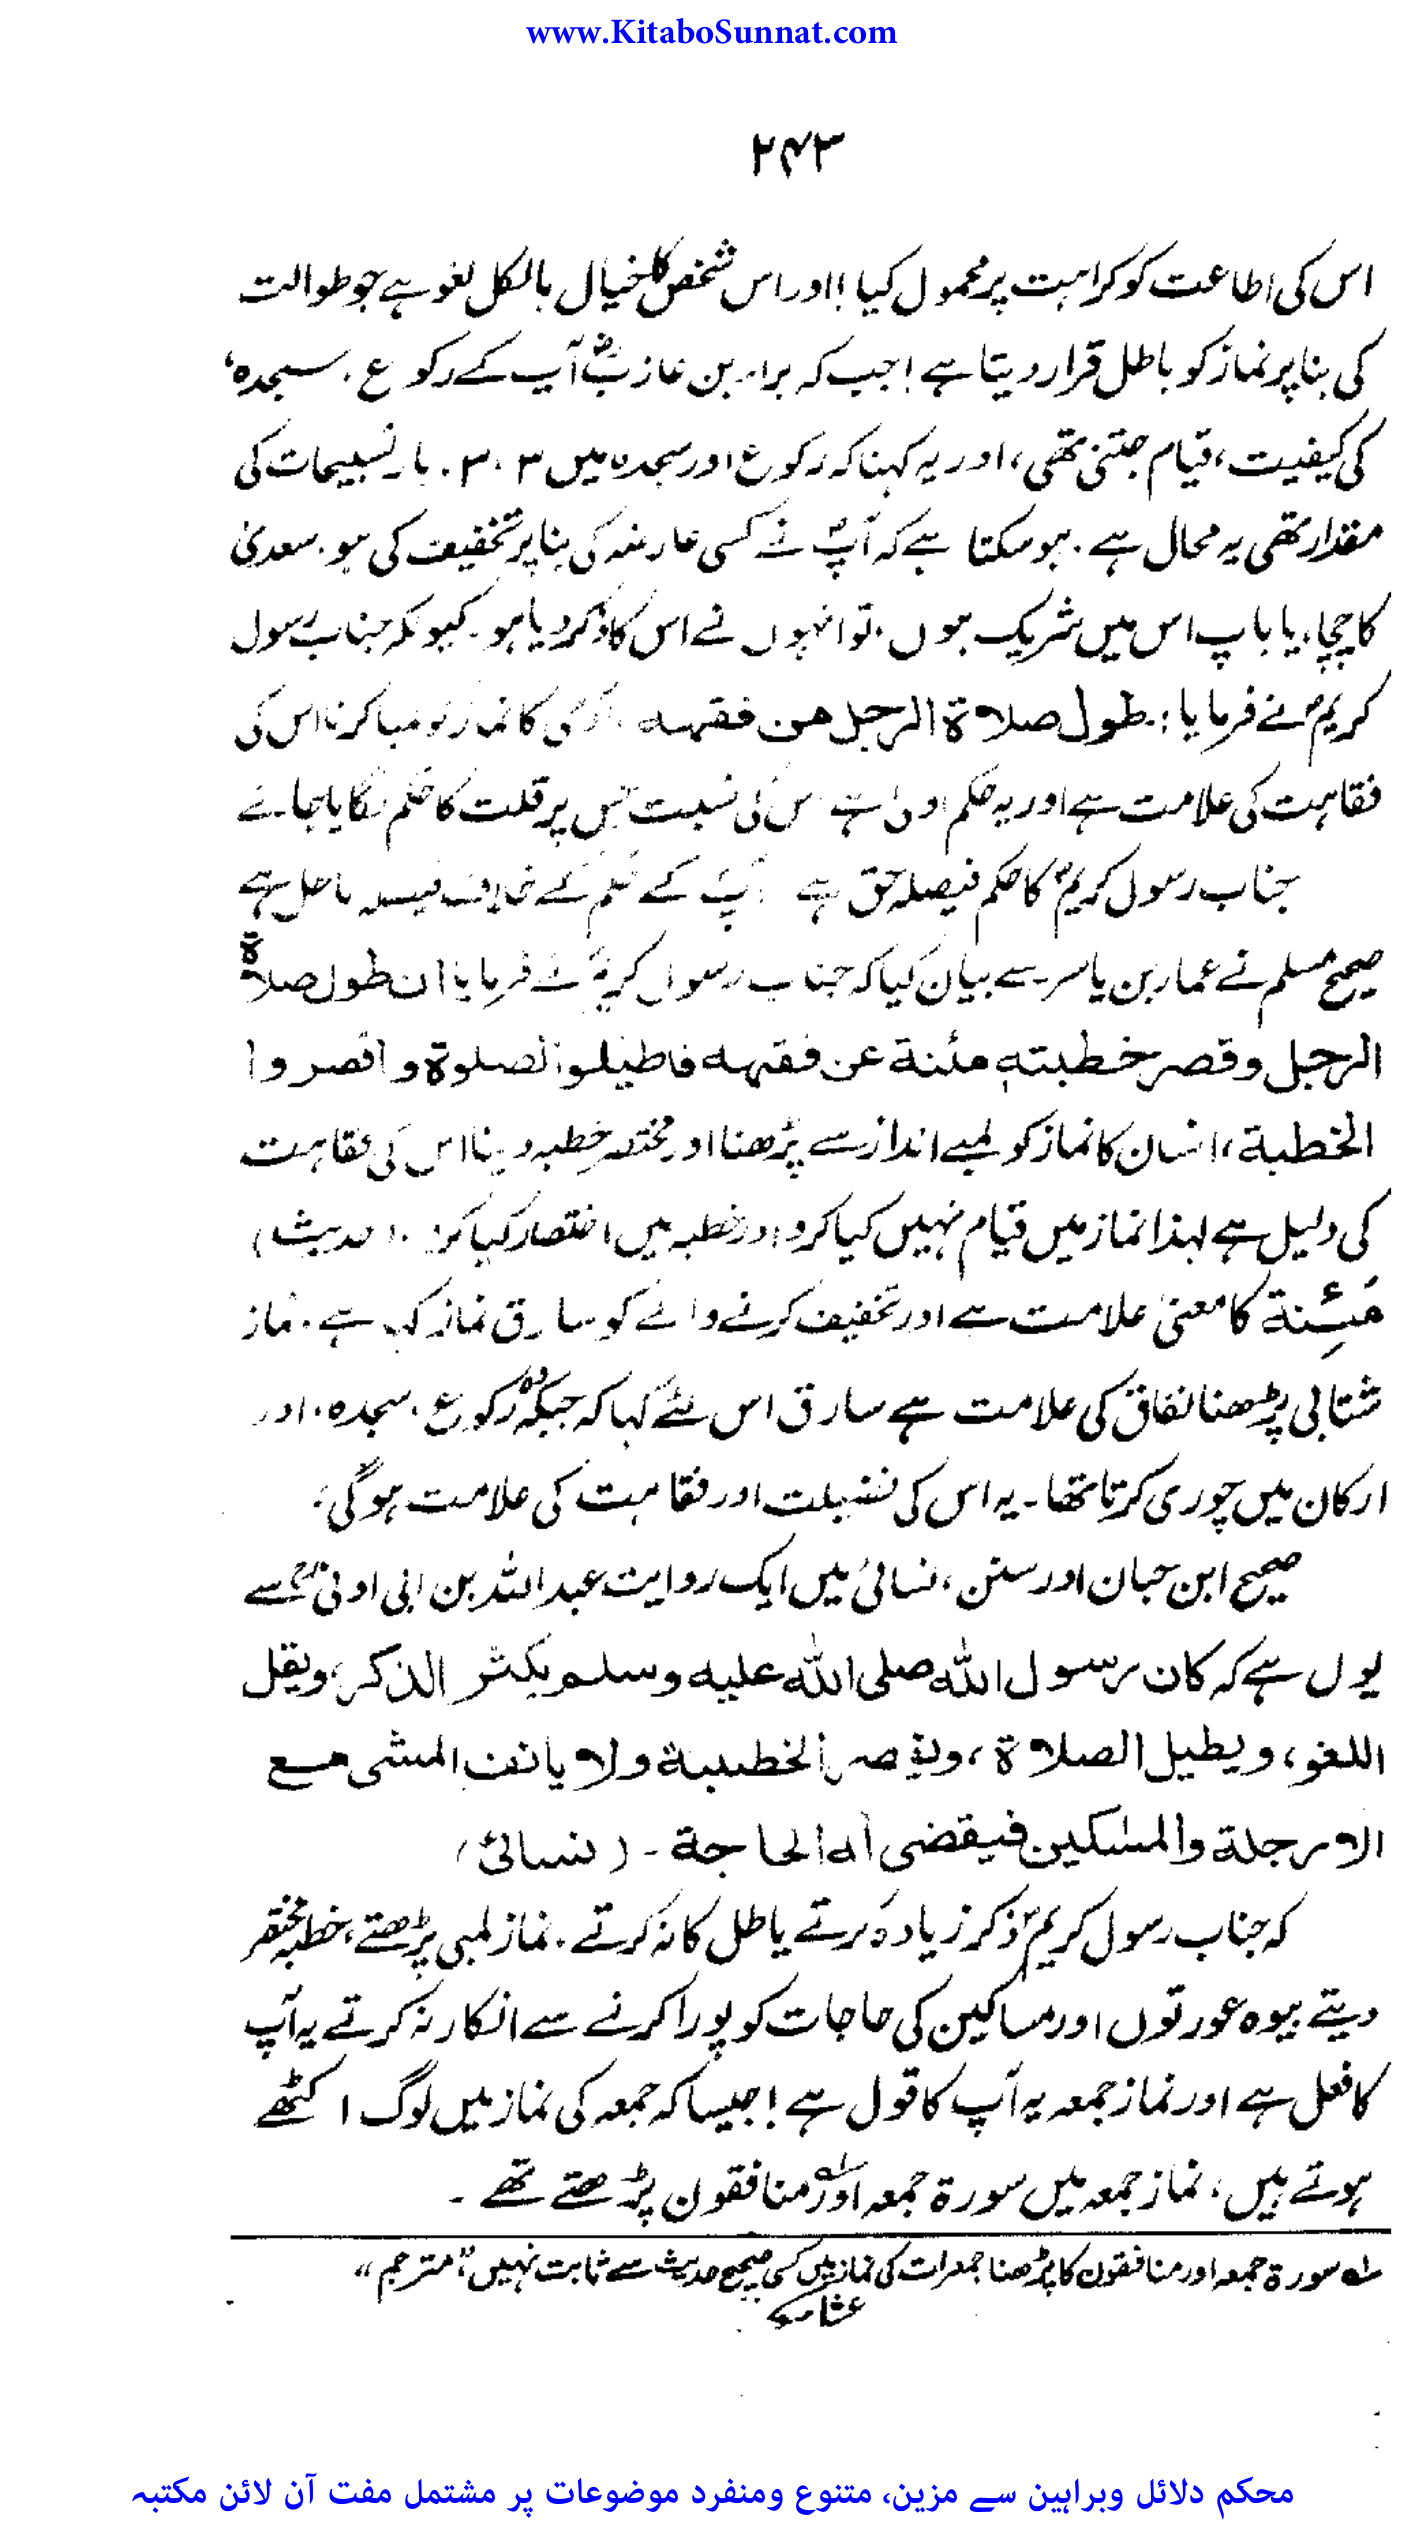 www.KitaboSunnat.com
۲۴۳
اس کی اطاعت کو کراہت پر محمول کیا! اور اس شخص کا خیال بالکل لغو ہے جو طوالت
کی بنا پر نماز کو باطل قرار دیتا ہے! جب کہ براء بن عازبؓ آپ کے رکوع، سجدہ،
کی کیفیت، قیام جتنی تھی، اور یہ کہنا کہ رکوع اور سجدہ میں ۳، ۳، بار تسبیحات کی
مقدار تھی یہ محال ہے۔ ہو سکتا ہے کہ آپؐ نے کسی عارضہ کی بنا پر تخفیف کی ہو۔ سعدیٰ
کا چچا، یا باپ اس میں شریک ہوں، تو انہوں نے اس کا ذکر دیا ہو۔ کیونکہ جناب رسول
کریمؐ نے فرمایا: طول صلاة الرجل من فقهه کا نماز کو لمبا کرنا اس کی
فقاہت کی علامت ہے اور یہ حکم اولیٰ ہے اس کی نسبت جس پر قلت کا حکم لگایا جائے
جناب رسول کریمؐ کا حکم فیصلہ حق ہے آپؐ کے حکم کے خلاف فیصلہ باطل ہے
صحیح مسلم نے عمار بن یاسر سے بیان کیا کہ جناب رسول کریمؐ نے فرمایا ان طول صلاة
الرجل وقصر خطبته مئنة عن فقهه فاطيلوا الصلوة واقصروا
الخطبة، انسان کا نماز کو لمبے انداز سے پڑھنا اور مختصر خطبہ دینا اس کی فقاہت
کی دلیل ہے لہذا نماز میں قیام نہیں کیا کرو اور خطبہ میں اختصار کیا کرو۔ (حدیث)
مَئِنة کا معنیٰ علامت ہے اور تخفیف کرنے والے کو سارق نماز کہا ہے۔ نماز
شتابی پڑھنا نفاق کی علامت ہے سارق اس لئے کہا کہ جبکہ وہ رکوع، سجدہ، اور
ارکان میں چوری کرتا تھا۔ یہ اس کی فضیلت اور فقاہت کی علامت ہوگی،
صحیح ابن حبان اور سنن، نسائی میں ایک روایت عبد اللہ بن ابی اوفیؓ سے
یوں ہے کہ کان رسول الله صلی الله علیه وسلم یکثر الذکر، ویقل
اللغو، ویطیل الصلاة، ویقصر الخطبة ولا یانف المشی مع
الارملة والمسکین فیقضی له الحاجة۔ (نسائی)
کہ جناب رسول کریمؐ ذکر زیادہ کرتے یا طل کا نہ کرتے۔ نماز لمبی پڑھتے، خطبہ مختصر
دیتے بیوہ عورتوں اور مساکین کی حاجات کو پورا کرنے سے انکار نہ کرتے یہ آپ
کا فعل ہے اور نماز جمعہ یہ آپ کا قول ہے! جیسا کہ جمعہ کی نماز میں لوگ اکٹھے
ہوتے ہیں، نماز جمعہ میں سورة جمعہ اور منافقون پڑھتے تھے۔
لہ سورة جمعہ اور منافقون کا پڑھنا جمعرات کی نماز میں کسی صحیح حدیث سے ثابت نہیں، "مترجم"
عشاء
محکم دلائل وبراہین سے مزین، متنوع ومنفرد موضوعات پر مشتمل مفت آن لائن مکتبہ